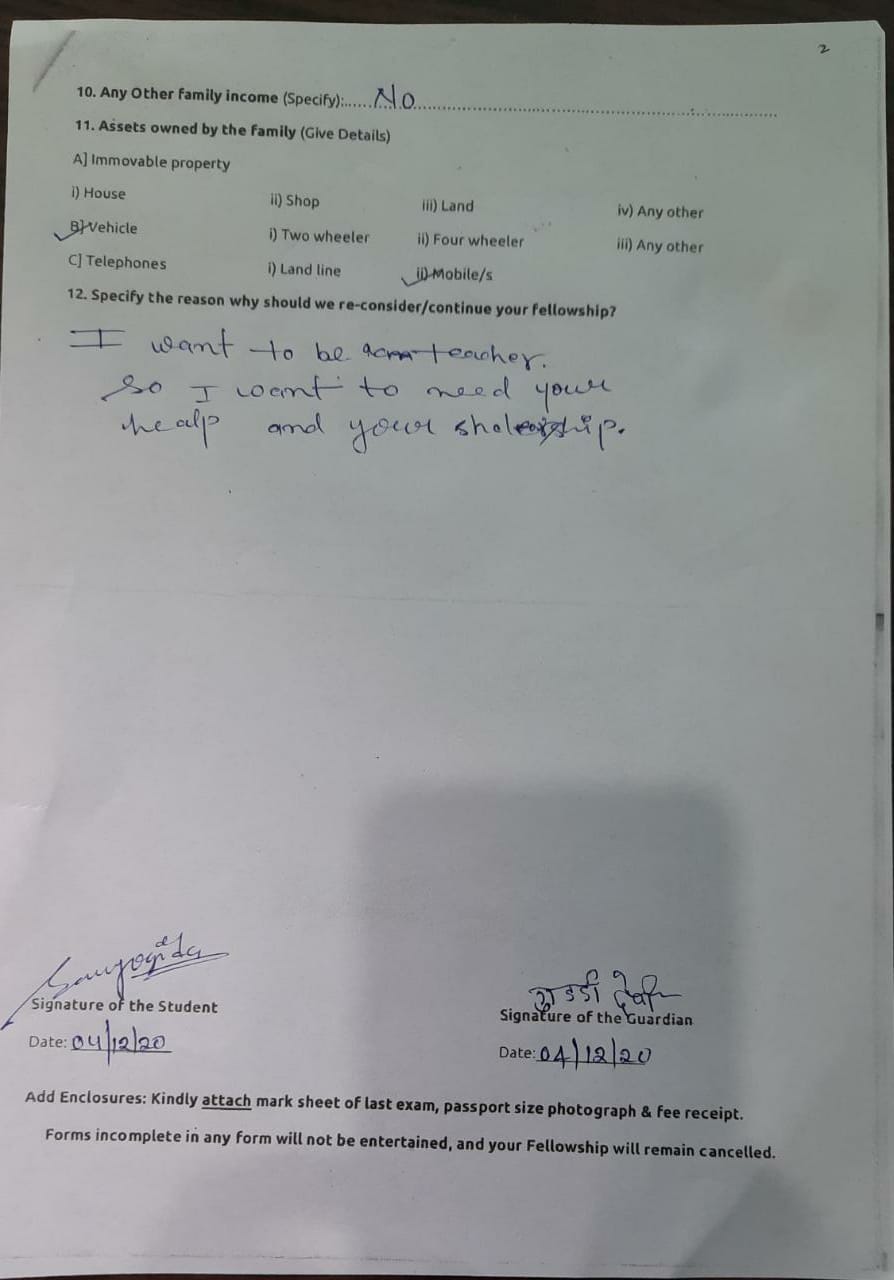 2
10. Any Other family income (Specify):......No..........
11. Assets owned by the family (Give Details)
A] Immovable property
i) House ii) Shop iii) Land iv) Any other
B] Vehicle i) Two wheeler ii) Four wheeler iii) Any other
C] Telephones i) Land line ii) Mobile/s
12. Specify the reason why should we re-consider/continue your fellowship?
I want to be teacher.
So I want to need your
healp and your sholeship.
Sanyogita
Signature of the Student
Signature of the Guardian
Date: 04/12/20
Date: 04/12/20
Add Enclosures: Kindly attach mark sheet of last exam, passport size photograph & fee receipt.
Forms incomplete in any form will not be entertained, and your Fellowship will remain cancelled.